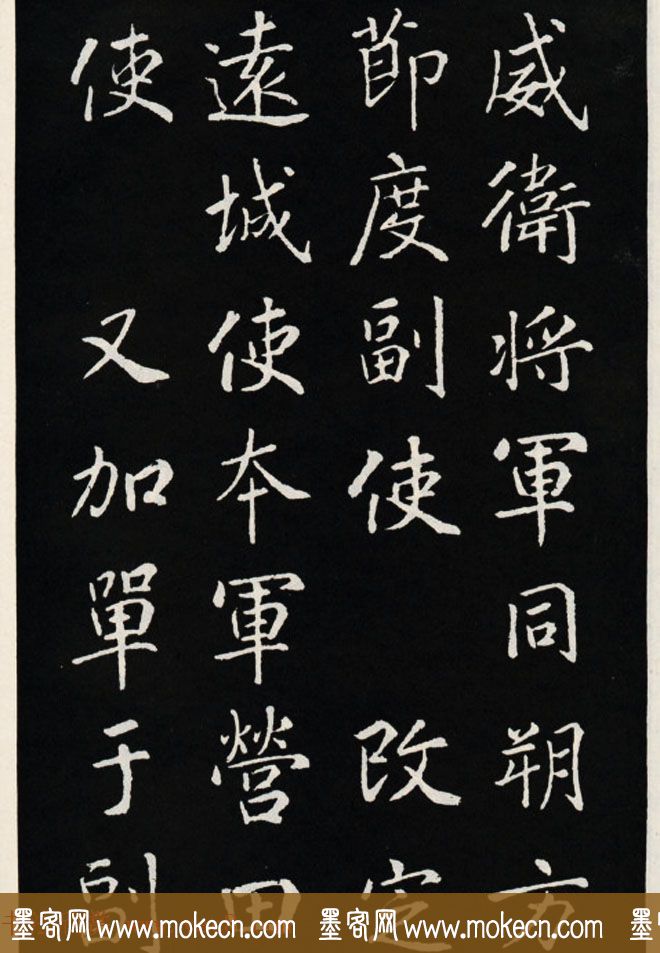 威衛將軍同朔方
節度副使 改定
遠城使本軍營田
使 又加單于副
墨客网 www.mokecn.com 墨客网 www.mokecn.com 墨